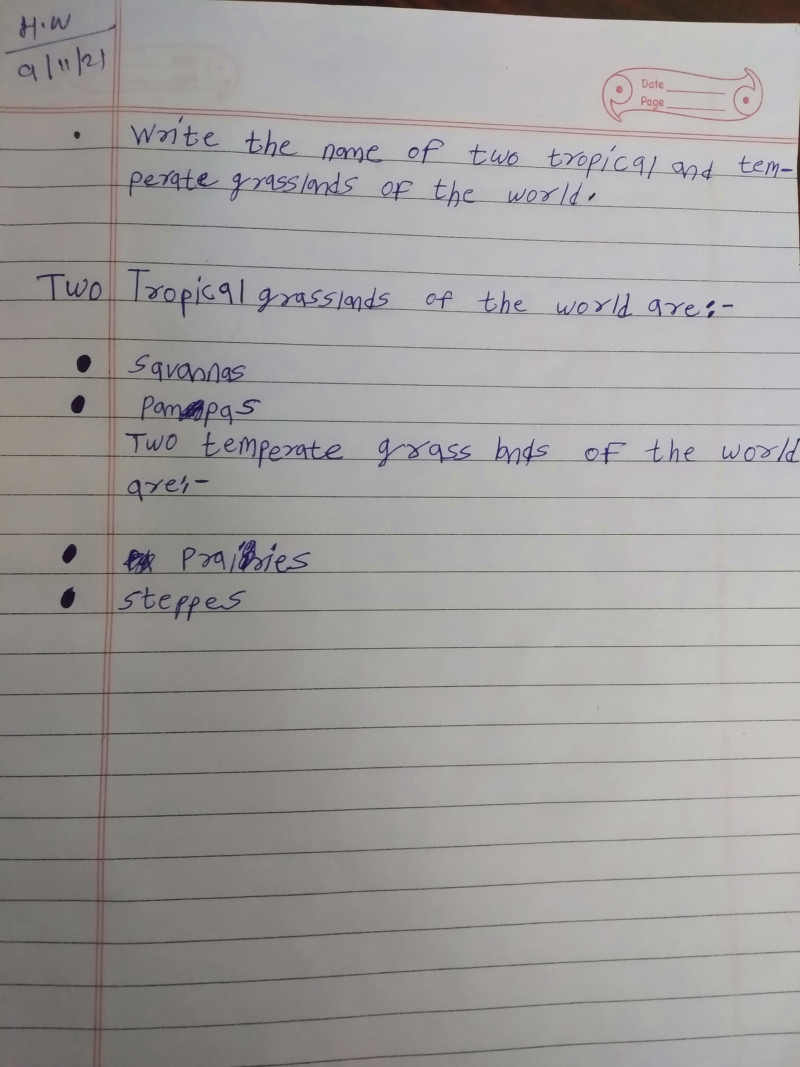 H.W
9/11/21
Date
Page
• Write the name of two tropical and tem-
perate grasslands of the world.
Two Tropical grasslands of the world are:-
• Savannas
• Pampas
Two temperate grass lands of the world
are:-
• Prairies
• Steppes